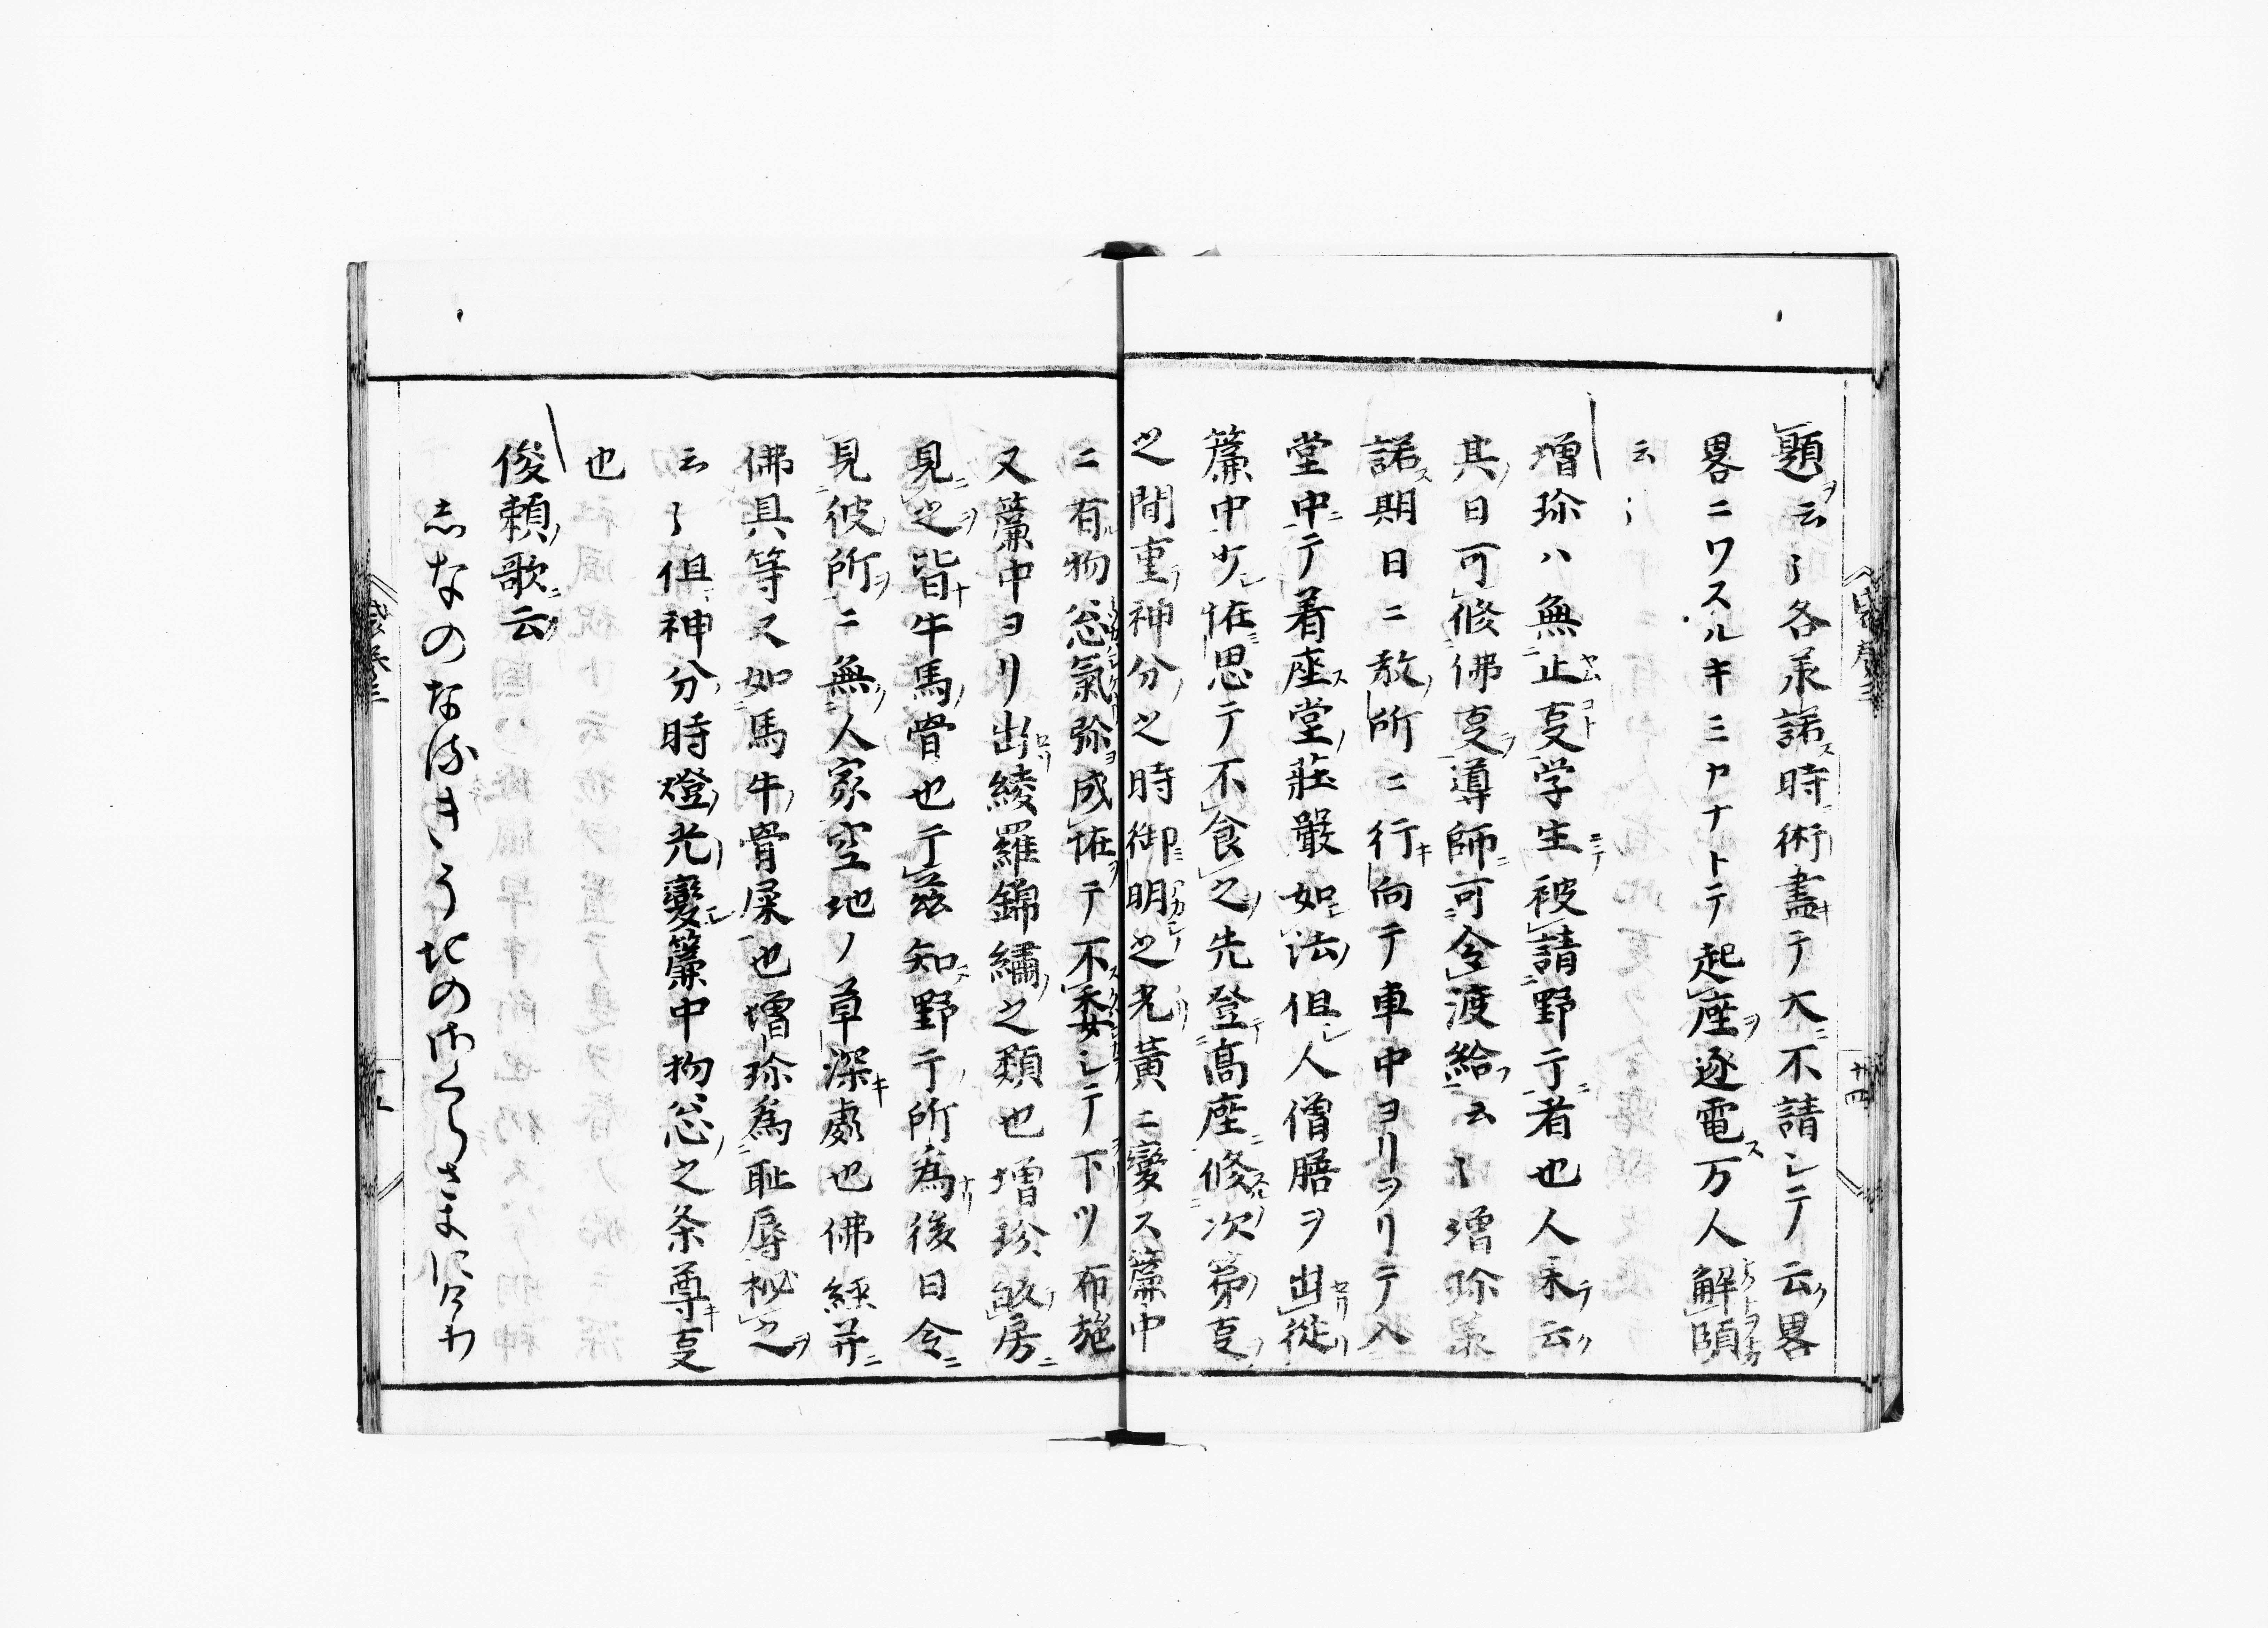 題云〻各承諾時術盡テ大不請シテ云畧
畧ニワスルキミヤナトテ起座逐電万人解頤
云〻
増珎ハ無止㕝学生被請野干者也人来云
其日可修佛㕝導師可令渡給云〻増珎承
諾期日ニ教所ニ行向テ車中ヨリヲリテ入
堂中テ着座堂莊嚴如法但人僧膳ヲ出従
簾中少恠思テ不食之先登髙座修次第㕝
之間重神分之時御明之光黄ニ變ス簾中
ニ有物忩氣弥成恠テ不委シテ下ツ布施
又簾中ヨリ出綾羅錦繡之類也増珍皈房
見之皆牛馬骨也于茲知野干所為後日令
見彼所ニ無人家空地ノ草深處也佛經并
佛具等又如馬牛骨屎也増珎為耻辱秘之
云〻但神分時燈光變簾中物忩之条尊㕝
也
俊頼歌云
志なのなるきその
十四